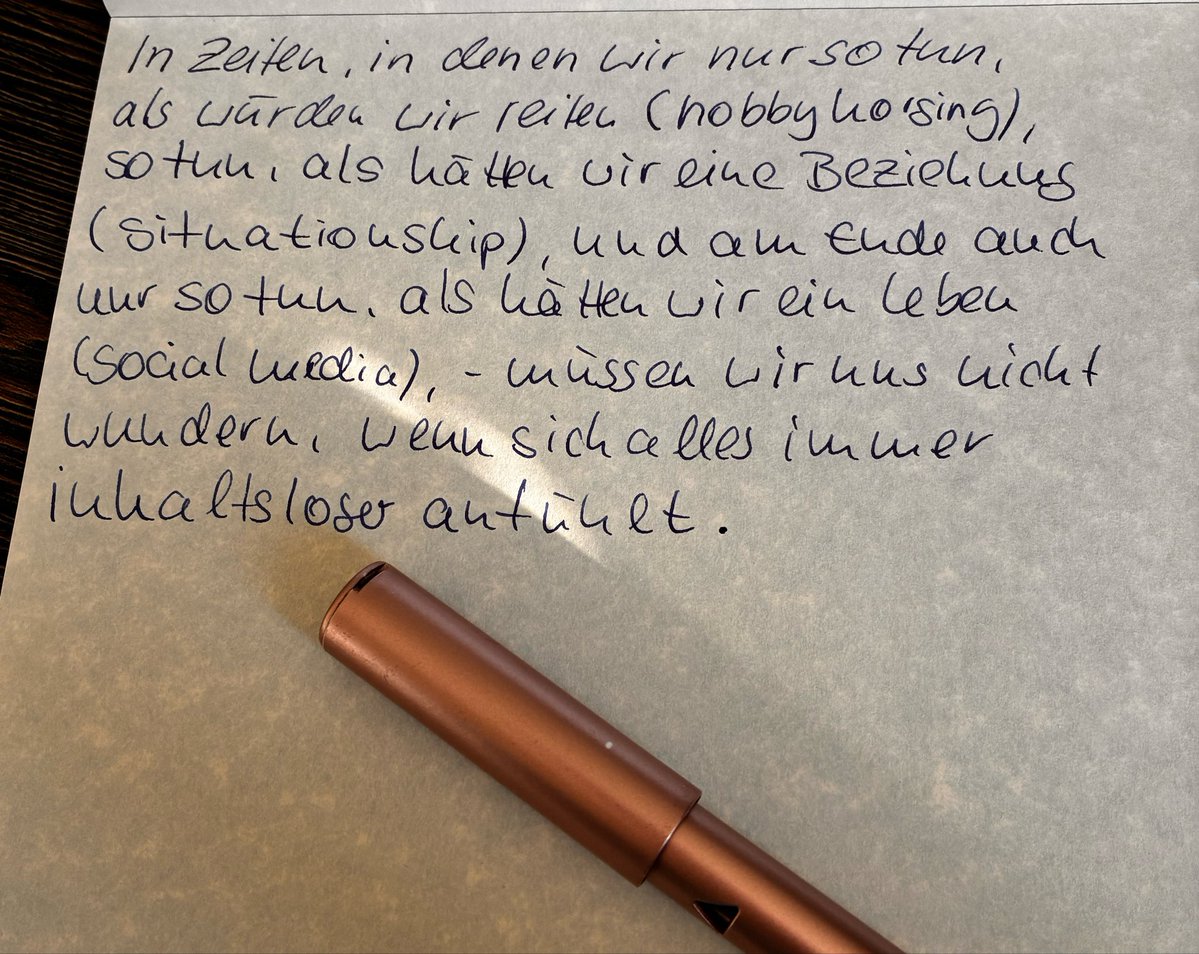 In Zeiten, in denen wir nur so tun,
als würden wir reiten (hobbyhorsing),
so tun, als hätten wir eine Beziehung
(situationship), und am Ende auch
nur so tun, als hätten wir ein Leben
(social media), - müssen wir uns nicht
wundern, wenn sich alles immer
inhaltsloser anfühlt.